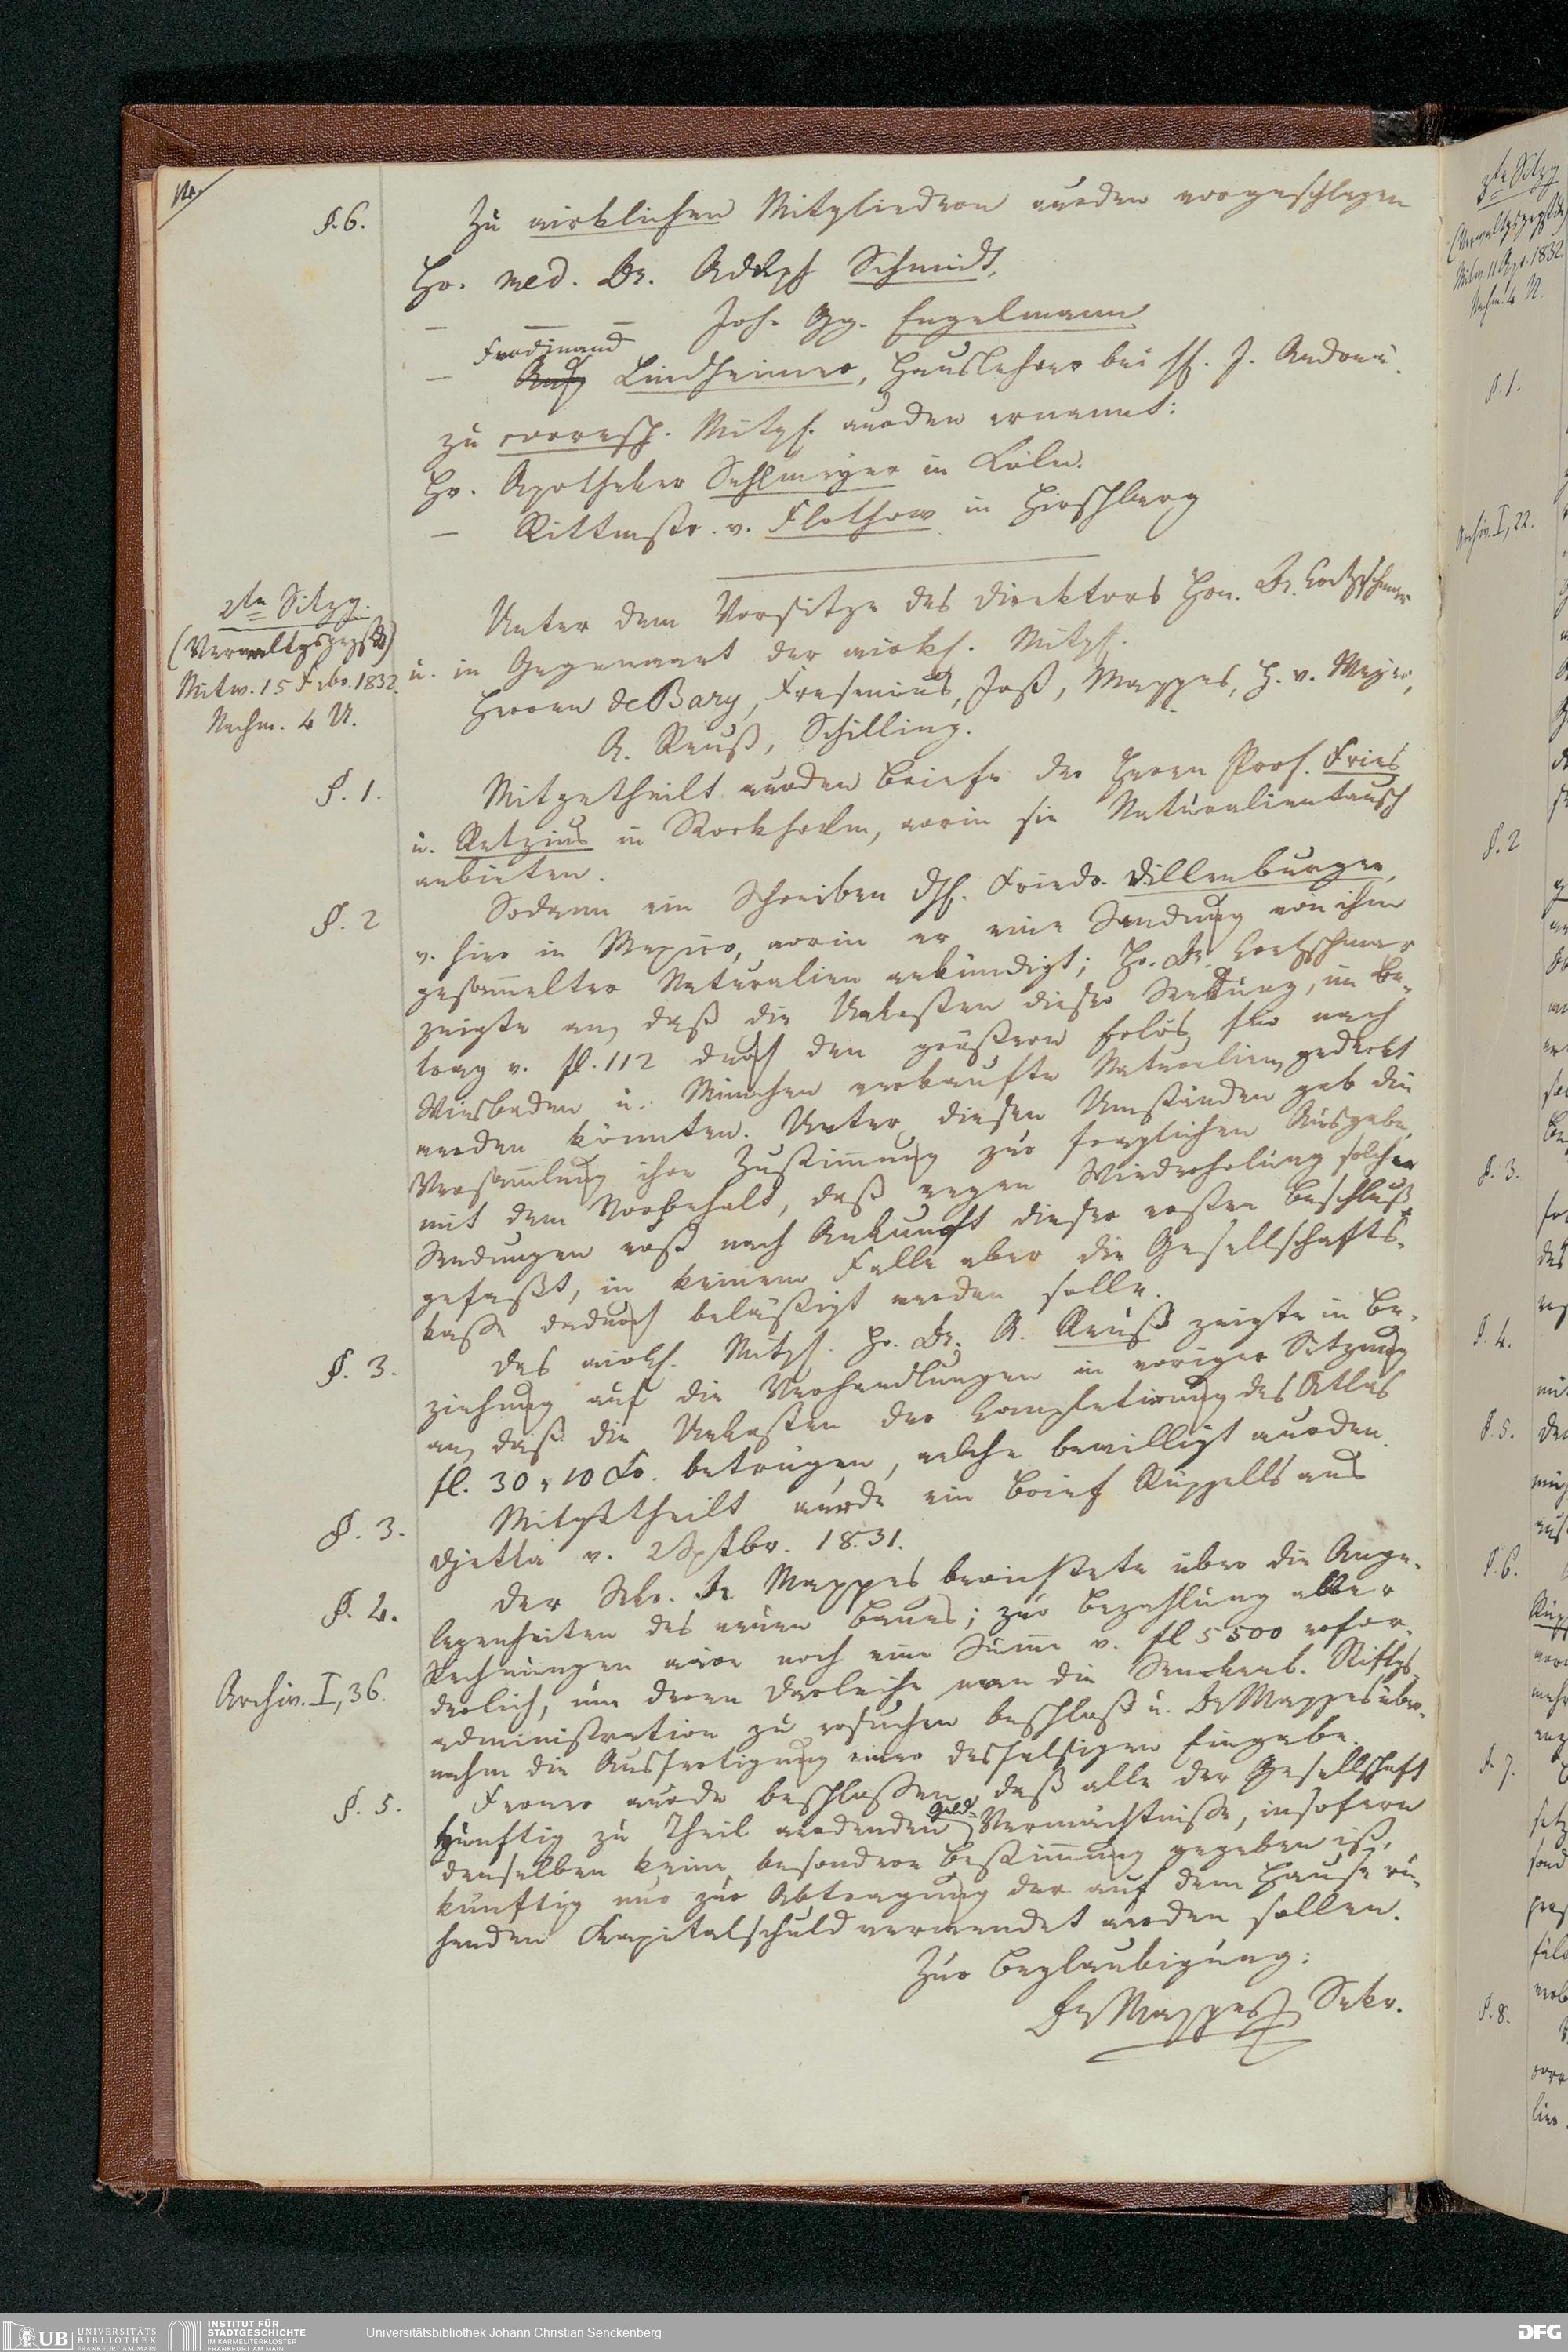 §. 6.
Zu wirklichen Mitgliedern wurden vorgeschlagen
Hr. med. Dr. Adolph Schmidt,
— — — Joh. Gg. Engelmann
Ferdinand
— Lindheimer, Hauslehrer bei H. J. Andreä.
zu corresp. Mitgl. wurden ernannt:
Hr. Apotheker Sehlmeyer in Cöln.
— Rittmstr. v. Flothow in Hirschberg
2te Sitzg.
Mitw. 15 Febr. 1832.
Nachm. 4 U.
Unter dem Vorsitze des Direktors Hrn. Dr. Cretzschmar
u. in Gegenwart der wirkl. Mitgl.
Herren de Bary, Fresenius, Jost, Mappes, H. v. Meyer,
A. Reuß, Schilling.
§. 1.
Mitgetheilt wurden Briefe der Herrn Prof. Fries
u. Retzius in Stockholm, worin sie Naturalientausch
anbieten.
§. 2
Sodann ein Schreiben des H. Friedr. Dillenburger,
v. hier in Mexico, worin er eine Sendung von ihm
gesammelter Naturalien ankündigt; Hr. Dr. Cretzschmar
zeigte an, daß die Unkosten dieser Sendung, im Be-
trag v. fl. 112 durch den größern Erlös für nach
Wiesbaden u. München verkaufte Naturalien gedeckt
werden könnten. Unter diesen Umständen gab die
Versammlung ihre Zustimmung zur fraglichen Ausgabe,
mit dem Vorbehalt, daß wegen Wiederholung solcher
Sendungen erst nach Ankunft dieser ersten Beschluß
gefaßt, in keinem Falle aber die Gesellschafts-
kasse dadurch belästigt werden solle.
§. 3.
Das wirkl. Mitgl. Hr. Dr. A. Reuß zeigte in Be-
ziehung auf die Verhandlungen in voriger Sitzung
an, daß die Unkosten der Completirung des Atlas
fl. 30, 10 Xr. betrügen, welche bewilligt wurden.
§. 3.
Mitgetheilt wurde ein Brief Rüppells aus
Djetta v. 2 Septbr. 1831.
§. 4.
Der Sekr. Dr Mappes berichtete über die Ange-
legenheiten des neuen Baues; zur Bezahlung aller
Rechnungen wäre noch eine Summe v. fl 5500 erfor-
Archiv. I, 36.
derlich, um deren Darleihe man die Senckenb. Stiftgs-
administration zu ersuchen beschloß u. Dr Mappes über-
nahm die Ausfertigung einer desfalsigen Eingabe.
§. 5.
Ferner wurde beschlossen, daß alle der Gesellschaft
Geld-
künftig zu Theil werdenden Vermächtnisse, insofern
denselben keine besondere Bestimmung gegeben ist,
künftig nur zur Abtragung der auf dem Hause ru-
henden Kapitalschuld verwendet werden sollen.
Zur Beglaubigung:
Dr Mappes Sekr.
3te Sitzg
Mitw 11 Apr. 1832
Nachm. 4 U.
§. 1.
Archiv. I, 22.
§. 2
§. 3.
§. 4.
§. 5.
§. 6.
§. 7.
§. 8.
UB UNIVERSITÄTS BIBLIOTHEK FRANKFURT AM MAIN
INSTITUT FÜR STADTGESCHICHTE IM KARMELITERKLOSTER FRANKFURT AM MAIN
Universitätsbibliothek Johann Christian Senckenberg
DFG